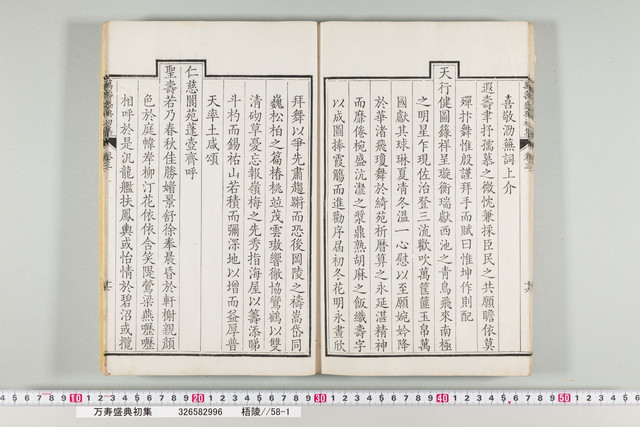 喜敬泐蕪詞上介
遐壽聿抒孺慕之微忱兼採臣民之共願瞻依莫
殫抃舞惟殷謹拜手而賦曰惟坤作則配
天行健圖籙祥呈璇衡瑞獻西池之青鳥飛來南極
之明星乍現佐治登三流歡吹萬筐篚玉帛萬
國獻其球琳夏凊冬溫一心慰以至願婉妗降
於華渚飛瓊舞於綺苑祈曆算之永延湛精神
而靡倦椀盛沆瀣之漿鼎熟胡麻之飯織壽字
以成圖捧霞觴而進勸序屆初冬花明永晝欣
拜舞以爭先肅趨蹡而恐後岡陵之禱嵩岱同
巍松柏之篇椿桃並茂雲璈響徹協鸞鶴以雙
清砌草蔓忘報嶺梅之先秀指海屋以籌添睇
斗杓而錫祐山若積而彌深地以增而益厚普
天率土咸頌
仁慈閬苑蓬壺齊呼
聖壽若乃春秋佳勝媚景舒徐奉晨昏於軒榭親顏
色於庭幃岸柳汀花依依含笑隄鶯梁燕壢壢
相呼於是汎龍艦扶鳳輿或怡情於碧沼或攬
万寿盛典初集 326582996 梧陵//58-1
10 20 30 40 50